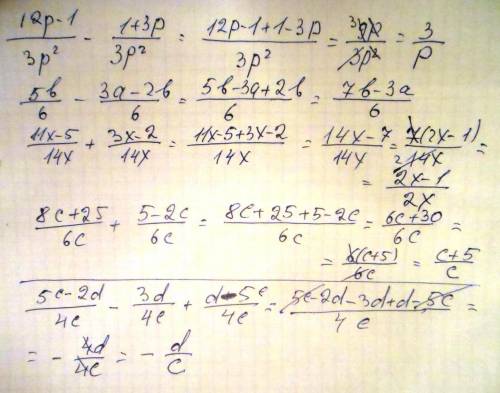 (12p-1)/(3p²) - (1+3p)/(3p²) = (12p-1+1-3p)/(3p²) = (9p)/(3p²) = 3/p
5b/6 - (3a-2b)/6 = (5b-3a+2b)/6 = (7b-3a)/6
(11x-5)/(14x) + (3x-2)/(14x) = (11x-5+3x-2)/(14x) = (14x-7)/(14x) = 7(2x-1)/(14x) =
= (2x-1)/(2x)
(8c+25)/(6c) + (5-2c)/(6c) = (8c+25+5-2c)/(6c) = (6c+30)/(6c) =
= 6(c+5)/(6c) = (c+5)/c
(5c-2d)/(4c) - 3d/(4c) + (d-5c)/(4c) = (5c-2d-3d+d-5c)/(4c) =
= - 4d/(4c) = - d/c